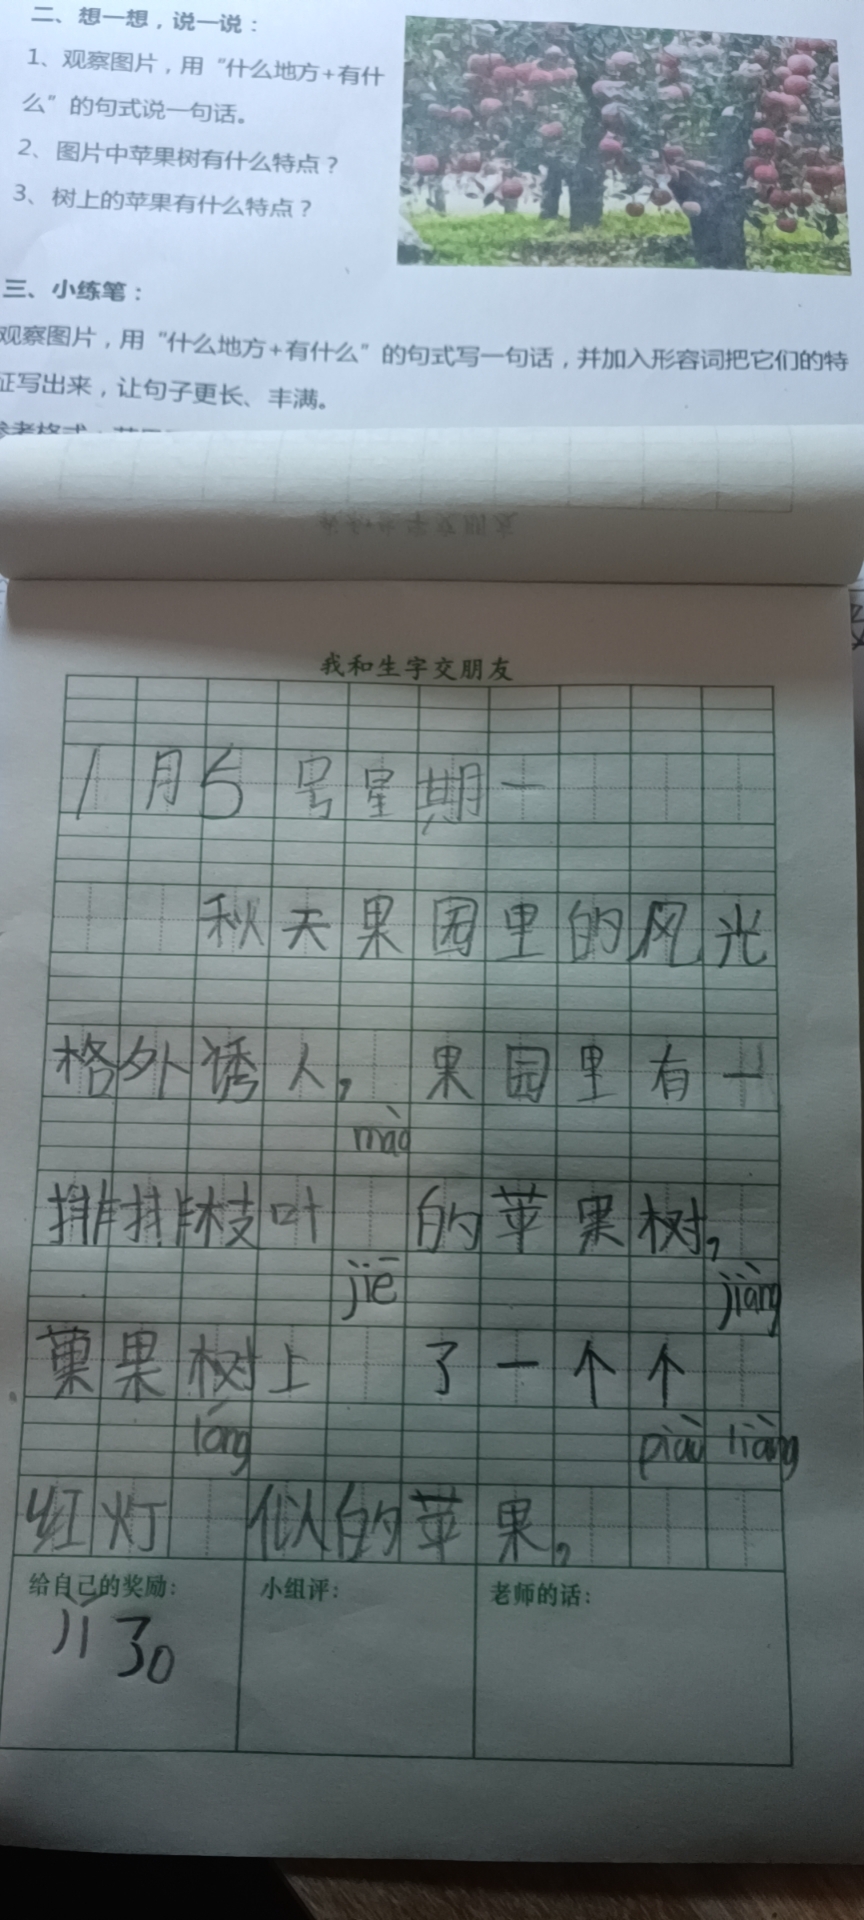 二、想一想，说一说：
1、观察图片，用“什么地方+有什
么”的句式说一句话。
2、图片中苹果树有什么特点？
3、树上的苹果有什么特点？
三、小练笔：
观察图片，用“什么地方+有什么”的句式写一句话，并加入形容词把它们的特
征写出来，让句子更长、丰满。
我和生字交朋友
1月5号星期一
秋天果园里的风光
格外诱人，果园里有一
mào
排排枝叶 的苹果树，
jiē jiàng
菓果树上 了一个个
lóng piào liàng
红灯 似的苹果，
给自己的奖励： 小组评： 老师的话：